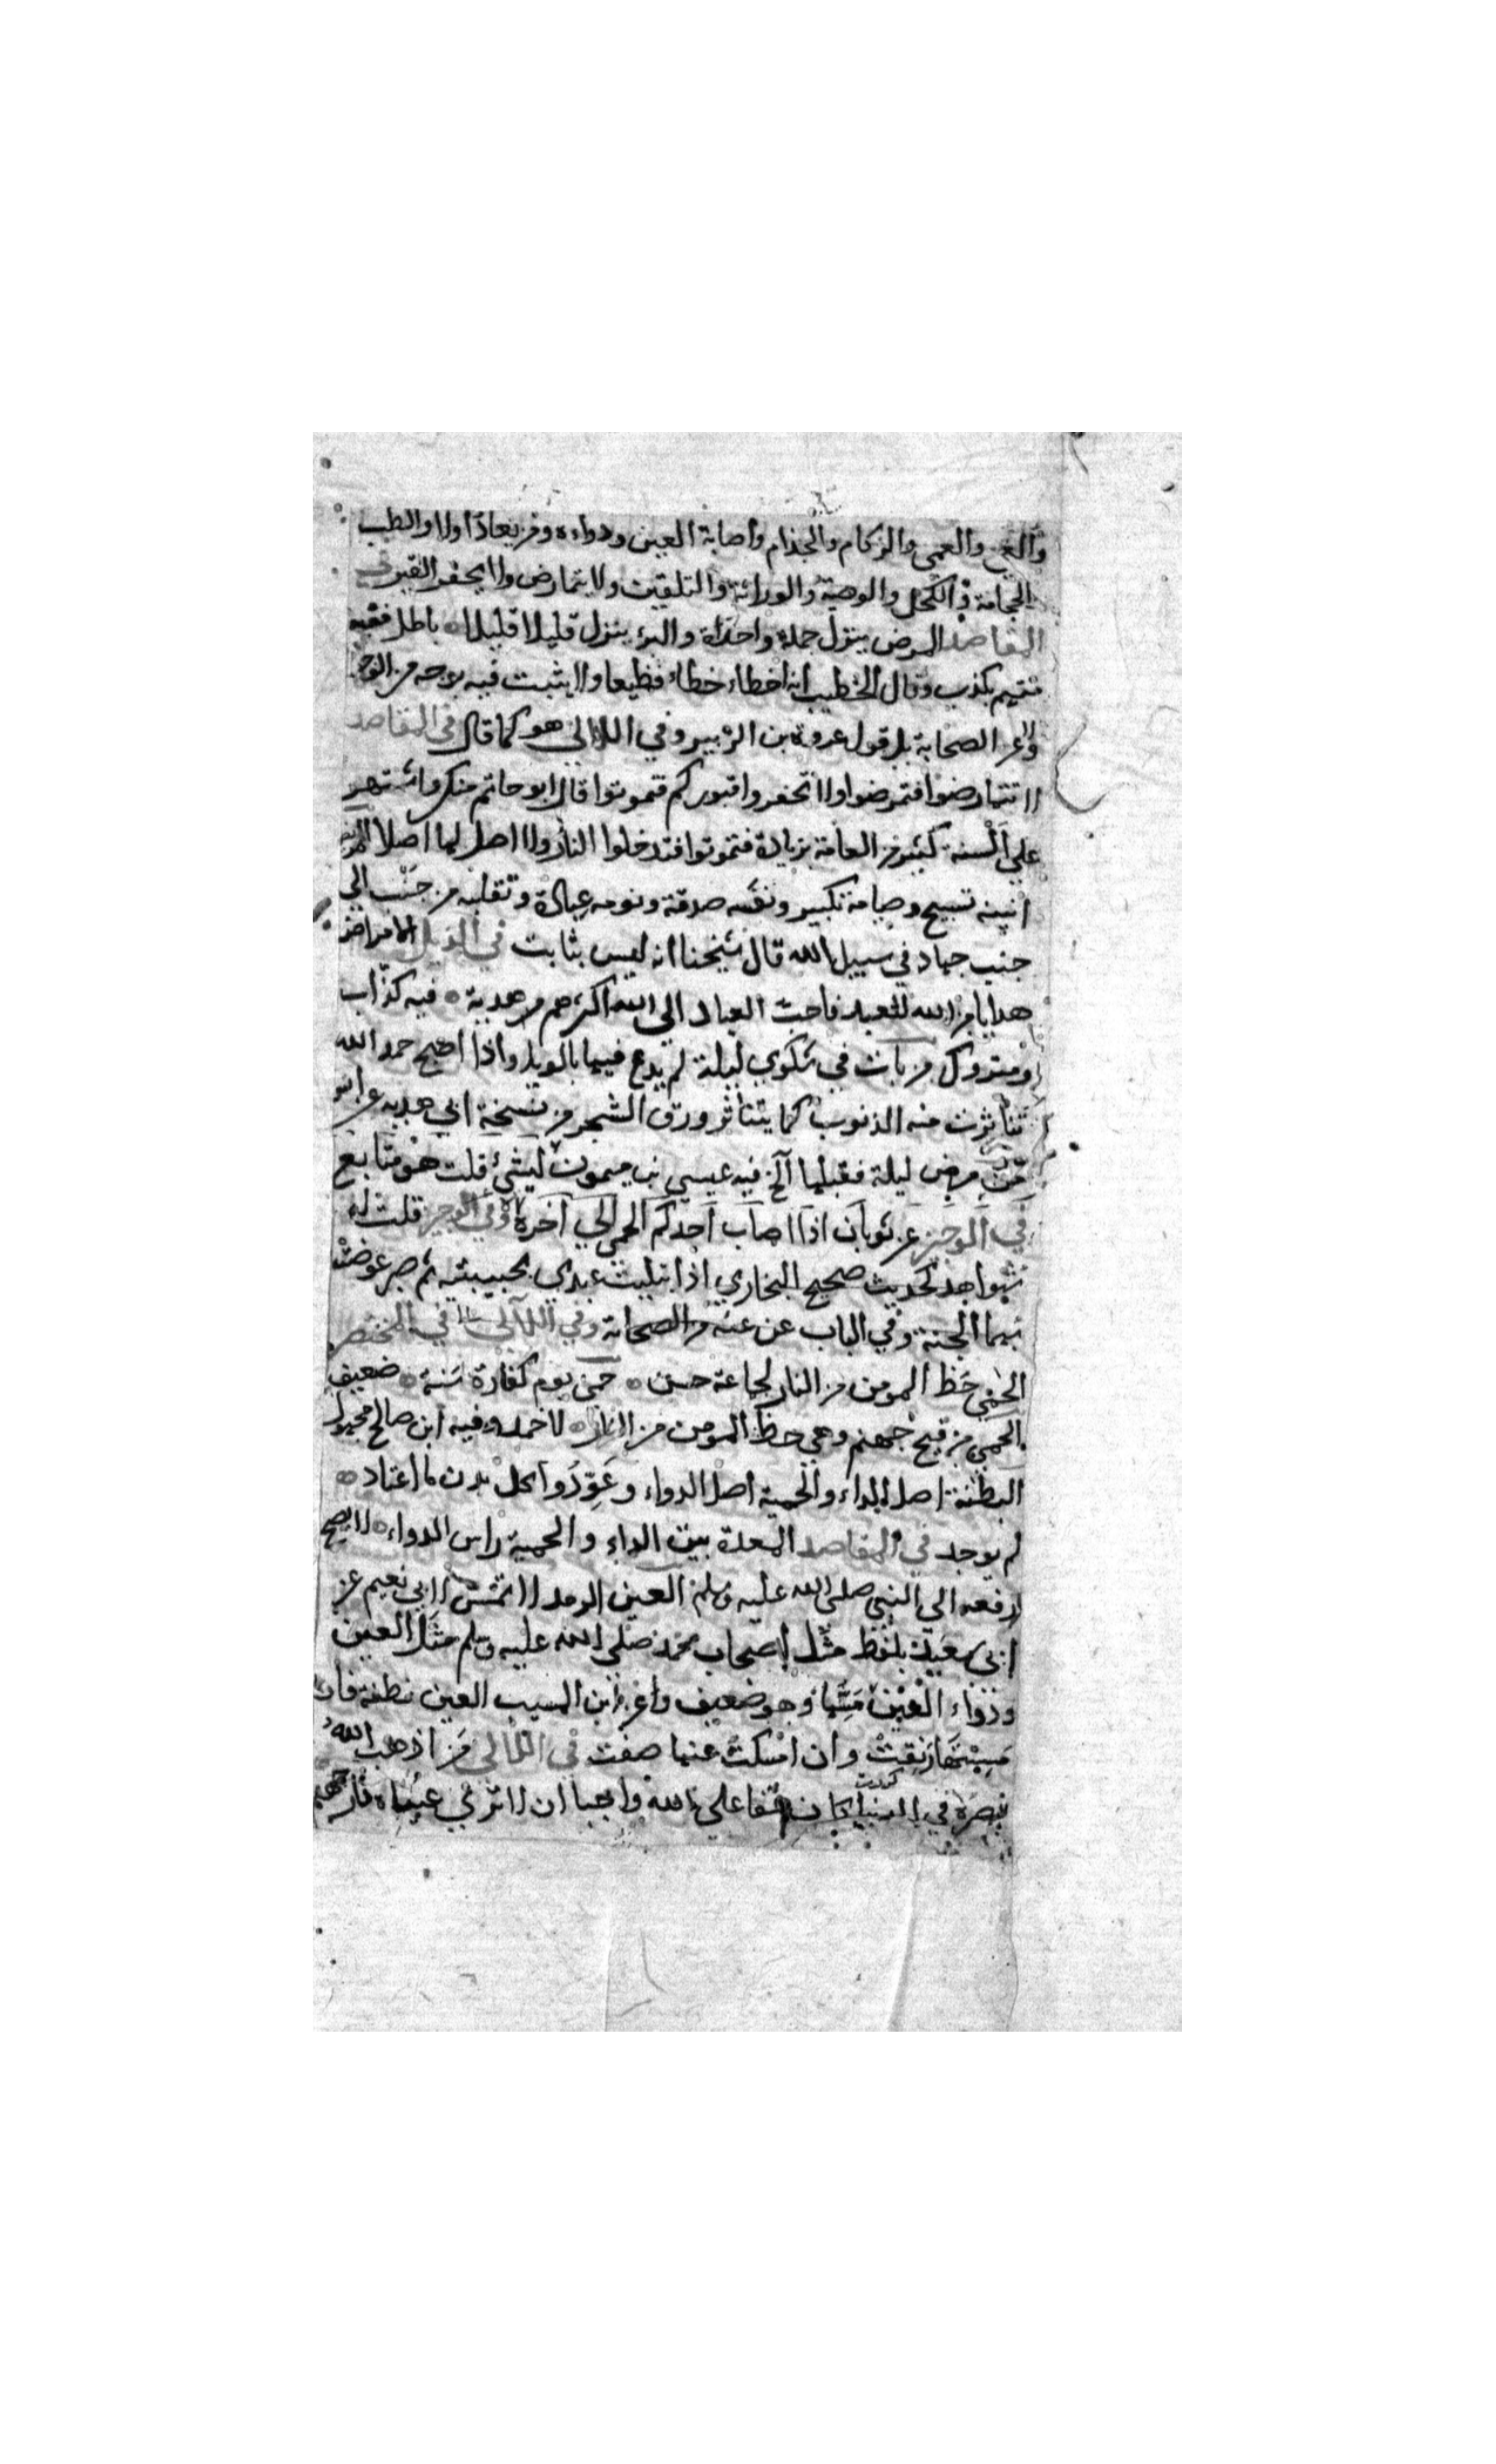 والعمى والزكام والجذام واصابة العين ودواءه ومن يعاد اولا والطب
الحجامة والكحل والوصية والوراثة والتلقين ولا يتمارض ولا يحفر القبر في
المقاصد المرض ينزل جملة واحدة والبرء ينزل قليلا قليلا باطل فقيه
متهم بكذب وقال الخطيب انه اخطاء خطاء فظيعا ولا يثبت فيه بوجه من الوجو
ولا عن الصحابة بل قول عروة بن الزبير وفي اللالي هو كما قال في المقاصد
لا تتمارضوا فتمرضوا ولا تحفروا قبوركم فتموتوا قال ابو حاتم منكر واشتهر
على السنة كثير من العامة بزيادة فتموتوا فتدخلوا النار ولا اصل لها اصلا المريض
انينه تسبيح وصيامه تكبير ونفسه صدقة ونومه عبادة وتقلبه من جنب الى
جنب جهاد في سبيل الله قال شيخنا انه ليس بثابت في الذيل الامراض
هدايا من الله للعبد فاحب العباد الى الله اكثرهم هدية فيه كذاب
ومتروك من بات في شكوى ليلة لم يدع فيها بالويل واذا اصبح حمد الله
تناثرت منه الذنوب كما يتناثر ورق الشجر من نسخة ابي هدبه عن انس
من مرض ليلة فقبلها الخ فيه عيسى بن ميمون ليس بشئ قلت هو متابع
في الوجيز عن ثوبان اذا اصاب احدكم الحمى الى آخره وفي الوجيز قلت له
شواهد كحديث صحيح البخاري اذا ابتليت عبدي بحبيبتيه ثم صبر عوضته
بهما الجنة وفي الباب عن عشر من الصحابة وفي اللآلي في المختصر
الحمى حظ المومن من النار لجماعة حسن حمى يوم كفارة سنة ضعيف
الحمى من قيح جهنم وهي حظ المومن من النار لاحمد وفيه ابن صالح مجهول
البطنة اصل الداء والحمية اصل الدواء وعودوا كل بدن ما اعتاد
لم يوجد في المقاصد المعدة بيت الداء والحمية راس الدواء لا يصح
رفعه الى النبي صلى الله عليه وسلم العين الرمد لا تمس لابي نعيم عن
ابي سعيد بلفظ مثل اصحاب محمد صلى الله عليه وسلم مثل العين
ودواء العين مسها وهو ضعيف وعن ابن المسيب العين نطفة فان
مسستها رنقت وان امسكت عنها صفت في اللآلي من اذهب الله
بصره في الدنيا كان حقا على الله واجبا ان لا ترى عيناه نار جهنم